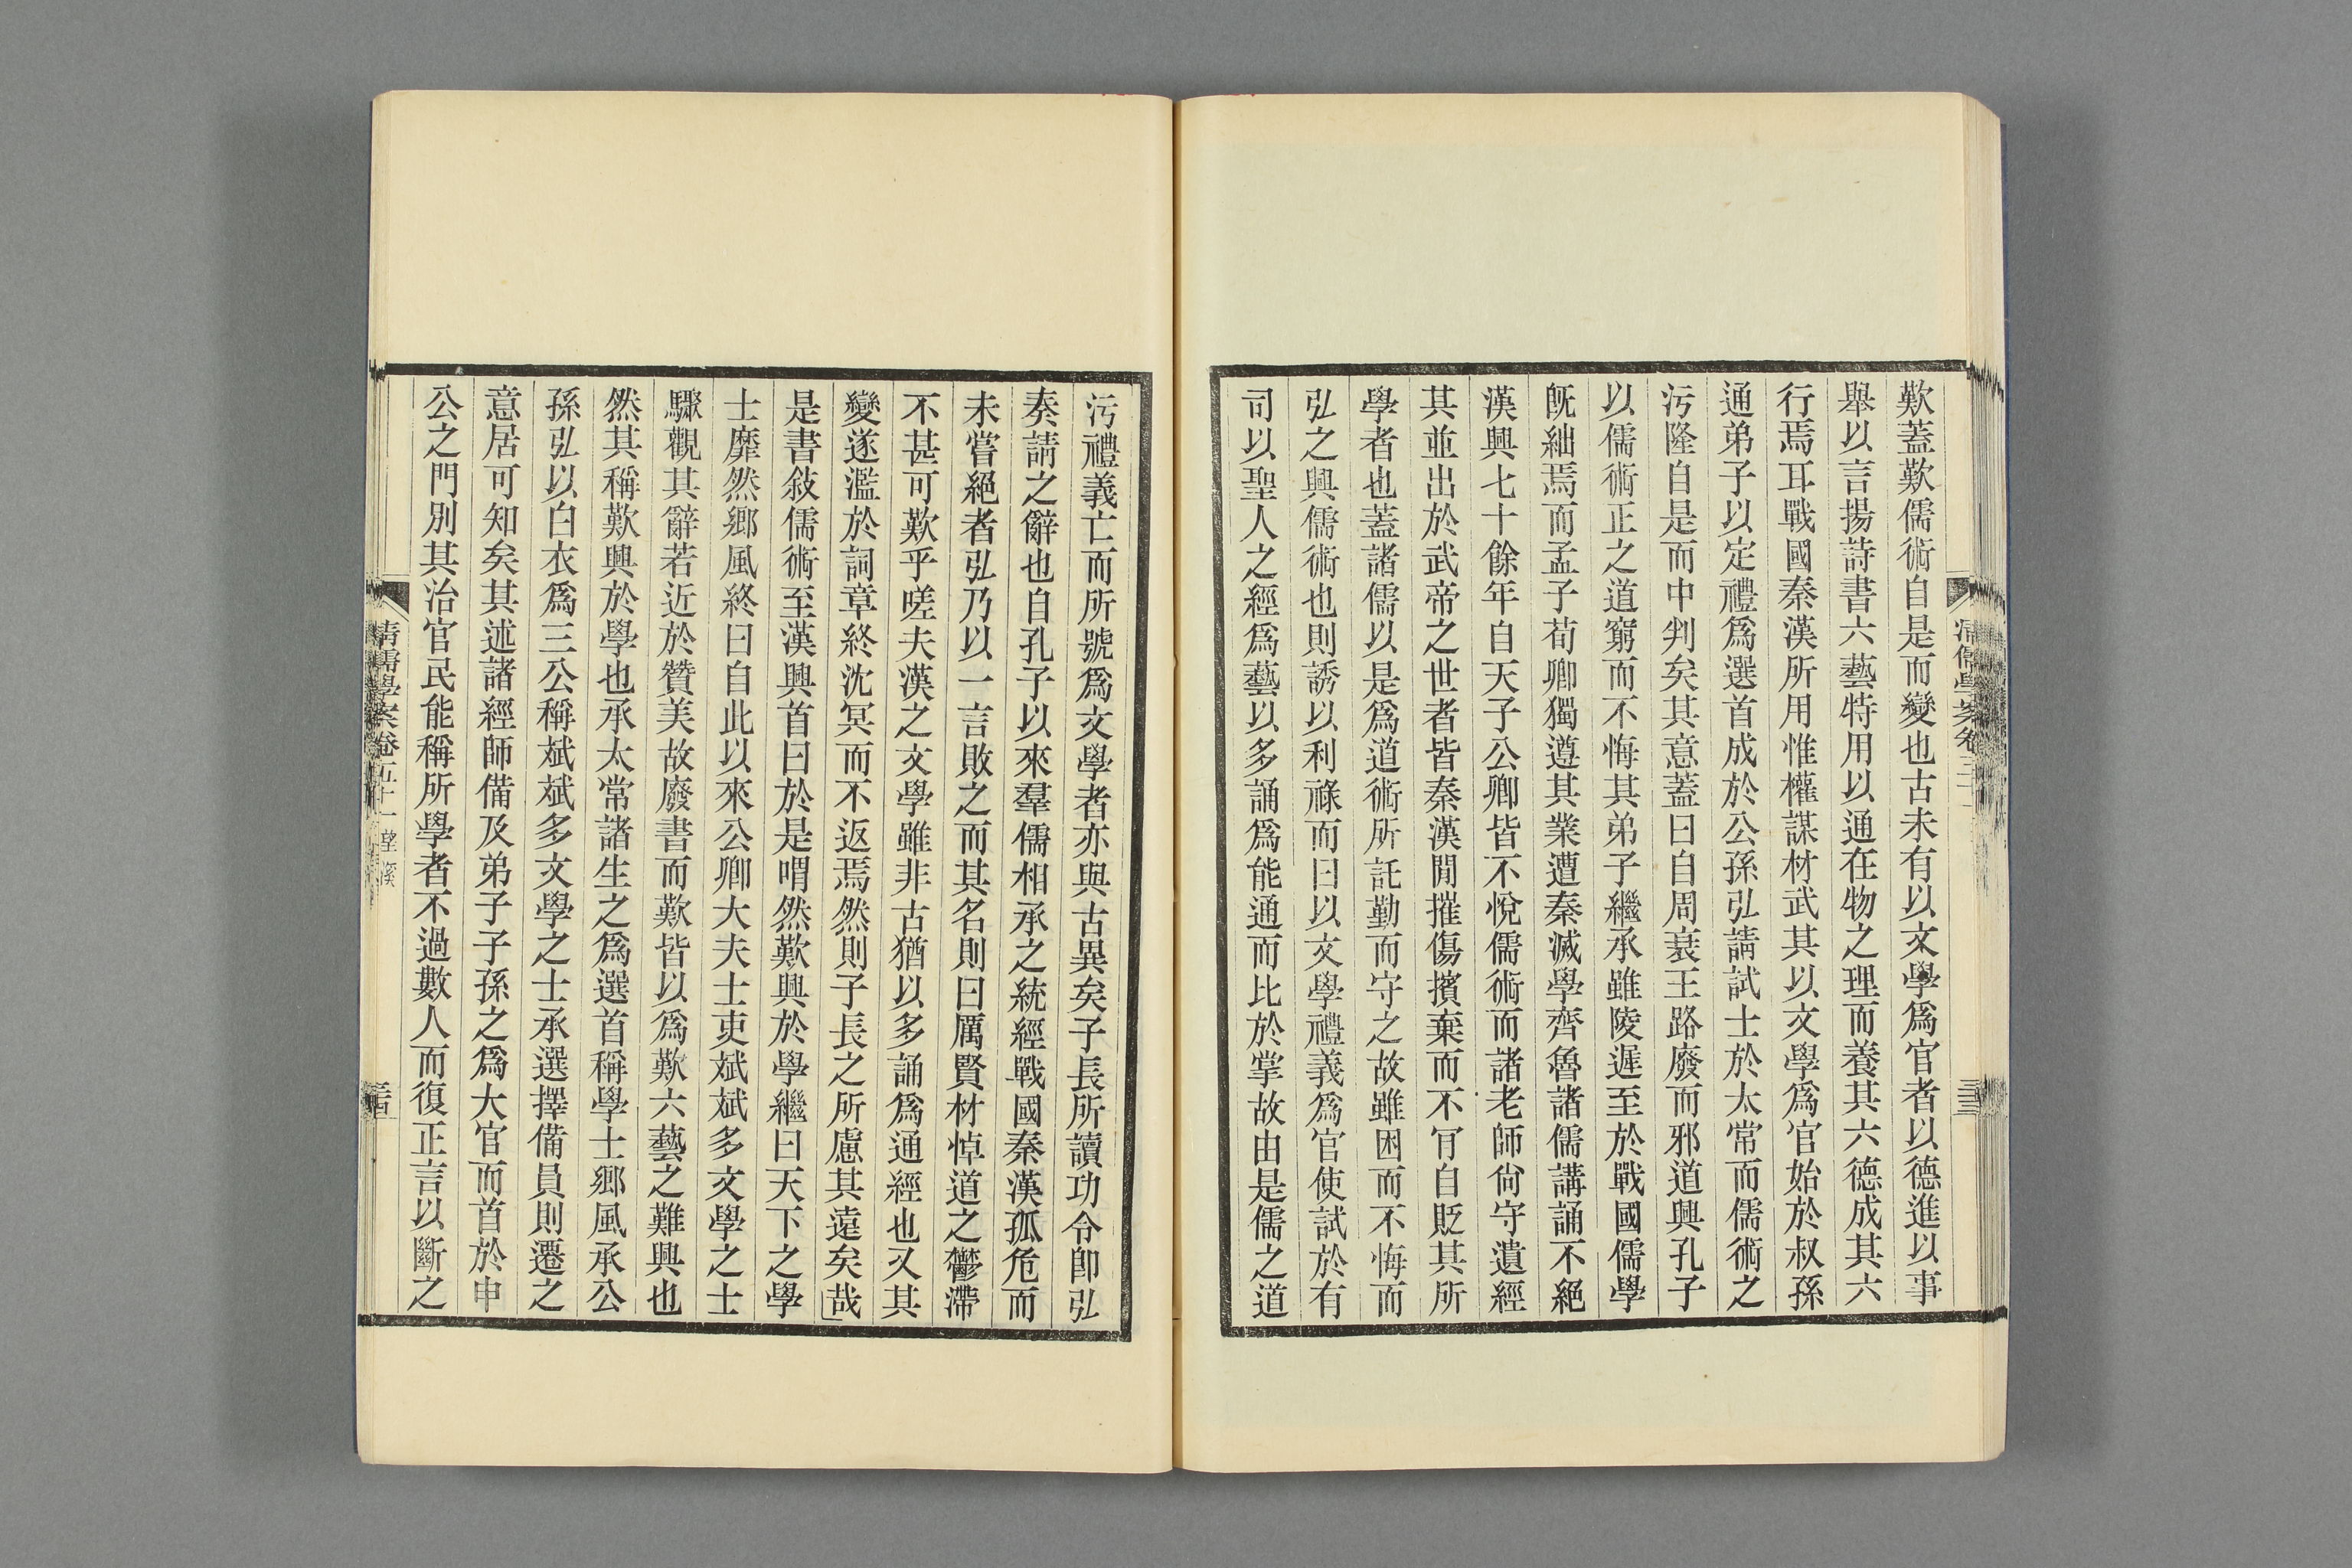 歎蓋歎儒術自是而變也古未有以文學爲官者以德進以事
舉以言揚詩書六藝特用以通在物之理而養其六德成其六
行焉耳戰國秦漢所用惟權謀材武其以文學爲官始於叔孫
通弟子以定禮爲選首成於公孫弘請試士於太常而儒術之
污隆自是而中判矣其意蓋曰自周衰王路廢而邪道興孔子
以儒術正之道窮而不悔其弟子繼承雖陵遲至於戰國儒學
旣絀焉而孟子荀卿獨遵其業遭秦滅學齊魯諸儒講誦不絕
漢興七十餘年自天子公卿皆不悅儒術而諸老師尙守遺經
其並出於武帝之世者皆秦漢閒摧傷擯棄而不肎自貶其所
學者也蓋諸儒以是爲道術所託勤而守之故雖困而不悔而
弘之興儒術也則誘以利祿而曰以文學禮義爲官使試於有
司以聖人之經爲藝以多誦爲能通而比於掌故由是儒之道
污禮義亡而所號爲文學者亦與古異矣子長所讀功令卽弘
奏請之辭也自孔子以來羣儒相承之統經戰國秦漢孤危而
未嘗絕者弘乃以一言敗之而其名則曰厲賢材悼道之鬱滯
不甚可歎乎嗟夫漢之文學雖非古猶以多誦爲通經也又其
變遂濫於詞章終沈冥而不返焉然則子長之所慮其遠矣哉
是書敍儒術至漢興首曰於是喟然歎興於學繼曰天下之學
士靡然鄉風終曰自此以來公卿大夫士吏斌斌多文學之士
驟觀其辭若近於贊美故廢書而歎皆以爲歎六藝之難興也
然其稱歎興於學也承太常諸生之爲選首稱學士鄉風承公
孫弘以白衣爲三公稱斌斌多文學之士承選擇備員則遷之
意居可知矣其述諸經師備及弟子子孫之爲大官而首於申
公之門別其治官民能稱所學者不過數人而復正言以斷之
清儒學案卷五十一 望溪